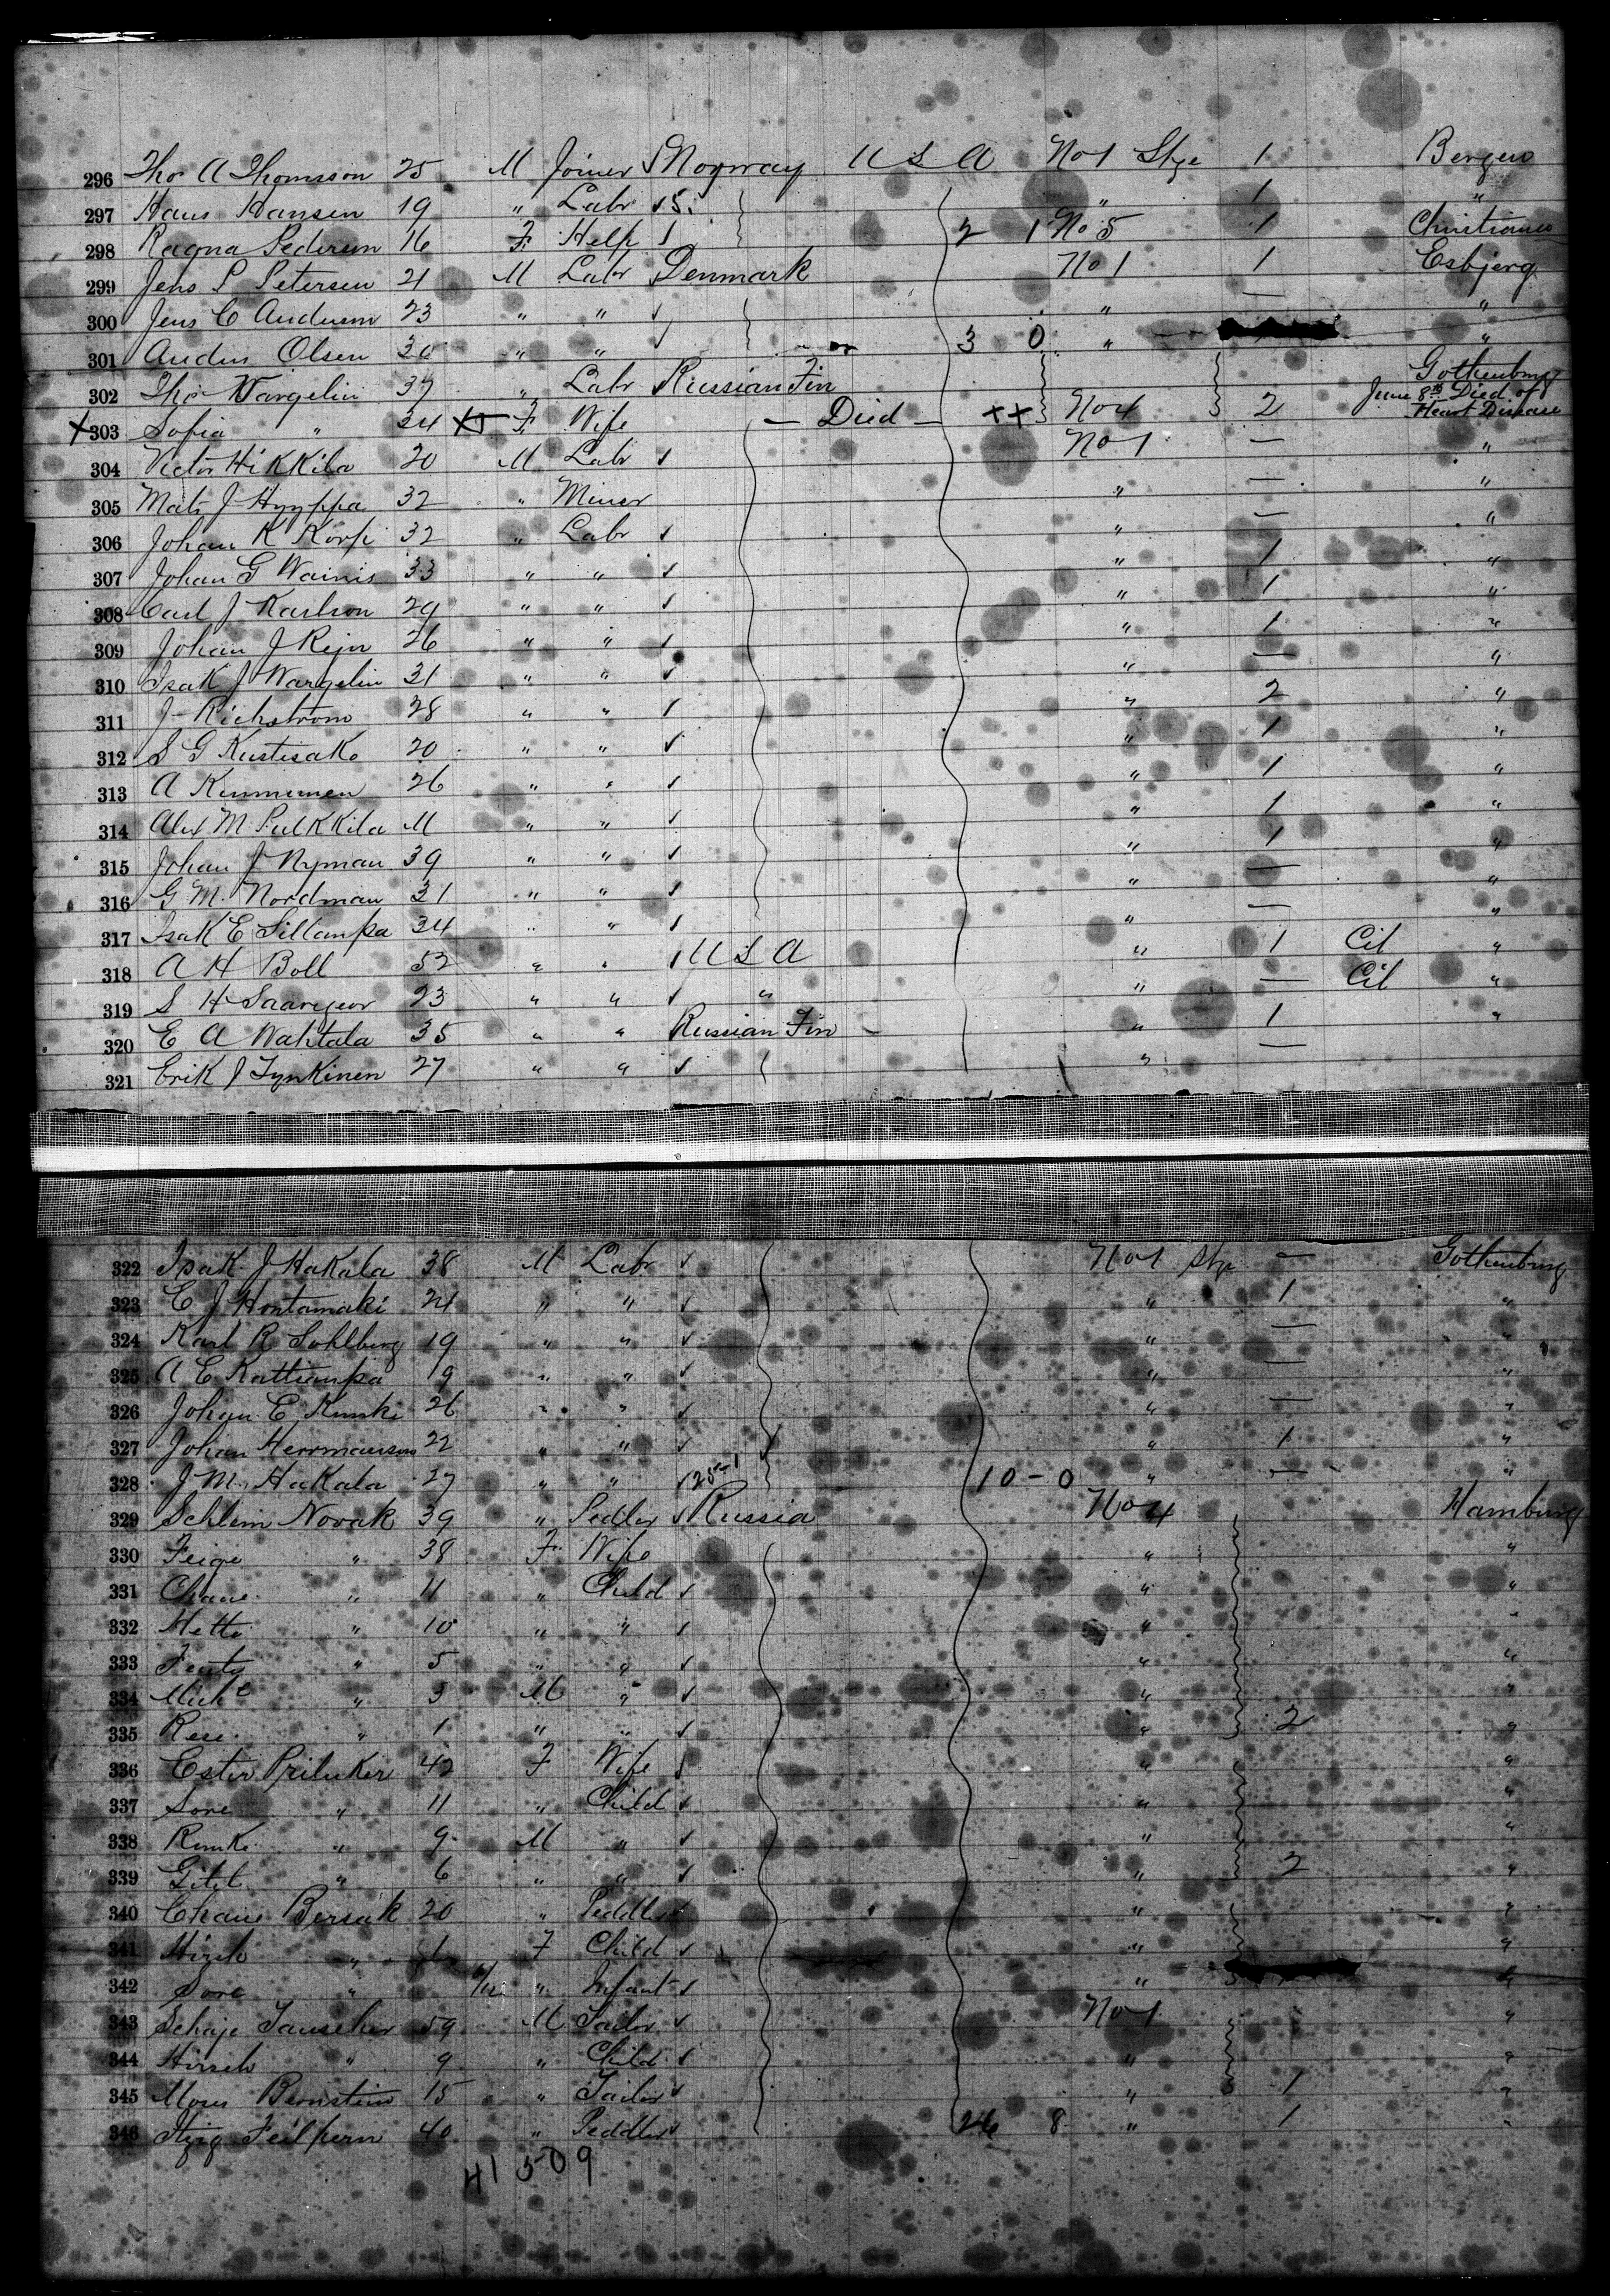 296 Thos A Thomsson 25 M Joiner Norway U S A No 1 Stge 1 Bergen
297 Hans Hansen 19 " Labr " 1 "
298 Ragna Pedersen 16 F Help 2 1 No 5 1 Christiania
299 Jens P Petersen 21 M Labr Denmark No 1 1 Esbjerg
300 Jens C Andersen 23 " " " — "
301 Anders Olsen 30 " " 3 0 " "
302 Thos Wargelin 37 " Labr Russian Fin Gothenburg
X 303 Sofia " 24 F Wife — Died — XX No 4 2 June 8th Died of Heart Disease
304 Victor Hikkila 20 M Labr No 1 — "
305 Mats J Hyyppa 32 " Miner " — "
306 Johan K Korpi 32 " Labr " — "
307 Johan G Wainis 33 " " " 1 "
308 Carl J Karlson 29 " " " 1 "
309 Johan J 26 " " " 1 "
310 Isak J Wargelin 31 " " " — "
311 J Richstrom 28 " " " 2 "
312 S G Kustisako 20 " " " 1 "
313 A 26 " " " 1 "
314 Alex M Pulkkila " " " 1 "
315 Johan J Nyman 39 " " " 1 "
316 G M Nordman 31 " " " — "
317 Isak E Sillanpa 34 " " " — "
318 A H Boll 52 " " U S A " 1 Cit "
319 S H 23 " " " " — Cit "
320 E A Wahtala 35 " " Russian Fin " 1 "
321 Erik J Tynkinen 27 " " " —
322 Isak J Hakala 38 M Labr No 1 Stge — Gothenburg
323 E J Hontamaki 24 " " " 1 "
324 Karl R Sohlberg 19 " " " — "
325 A E 19 " " " — "
326 Johan E 26 " " " — "
327 Johan Herrmanson 22 " " " 1 "
328 J M Hakala 27 " " 25-1 10-0 " — "
329 Schlem Novak 39 " Pedler Russia No 4 Hamburg
330 Feige " 38 F Wife " "
331 Chane " 11 " Child " "
332 Hette " 10 " " " "
333 " 5 " " " "
334 " 3 M " " "
335 " 1 " " " 2 "
336 Ester Priluker 42 F Wife " "
337 Sore " 11 " Child " "
338 " 9 M " " "
339 Gitel " 6 " " " 2 "
340 Chane Bersak 20 " Peddler " "
341 Hirsch " F Child " "
342 Sore " " Infant " "
343 Schaje Tauscher 59 M Tailor No 1 "
344 Hirsch " 9 " Child " "
345 Moses Bernstein 15 " Tailor " 1 "
346 Feilpern 40 " Peddler 26 8 " 1 "
41 509